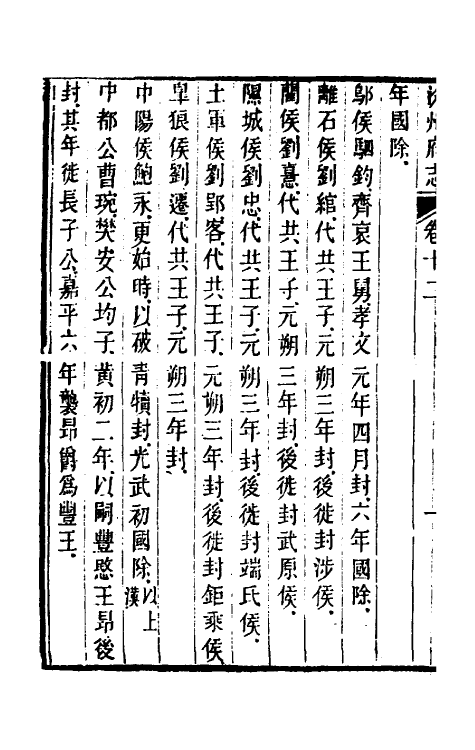 汾州府志 卷十二 一
年國除
鄔侯駟鈞齊哀王舅孝文元年四月封六年國除
離石侯劉綰代共王子元朔三年封後徙封涉侯
藺侯劉憙代共王子元朔三年封後徙封武原侯
隰城侯劉忠代共王子元朔三年封後徙封端氏侯
土軍侯劉郢客代共王子元朔三年封後徙封鉅乘侯
臯狼侯劉遷代共王子元朔三年封
中陽侯鮑永更始時以破青犢封光武初國除以上漢
中都公曹琬樊安公均子黃初二年以嗣豐愍王昂後
封其年徙長子公嘉平六年襲昂爵爲豐王